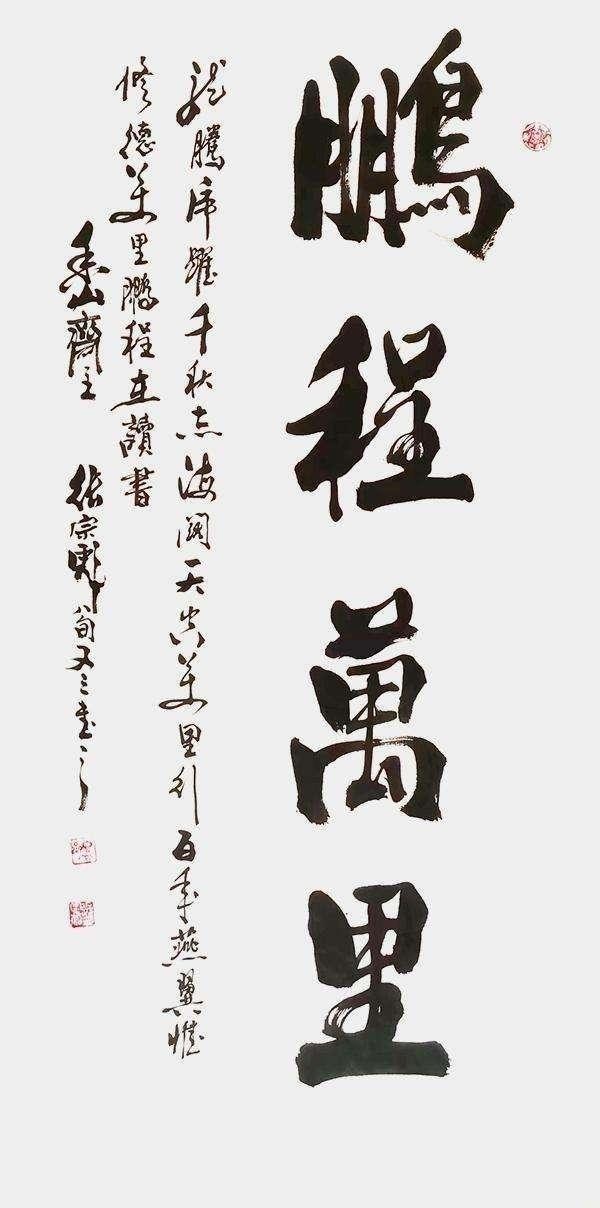 鵬程萬里
龍騰虎躍千秋志海闊天空万里行百年燕翼惟
修德万里鵬程在讀書
香山齋主
張宗彪八旬又三書之